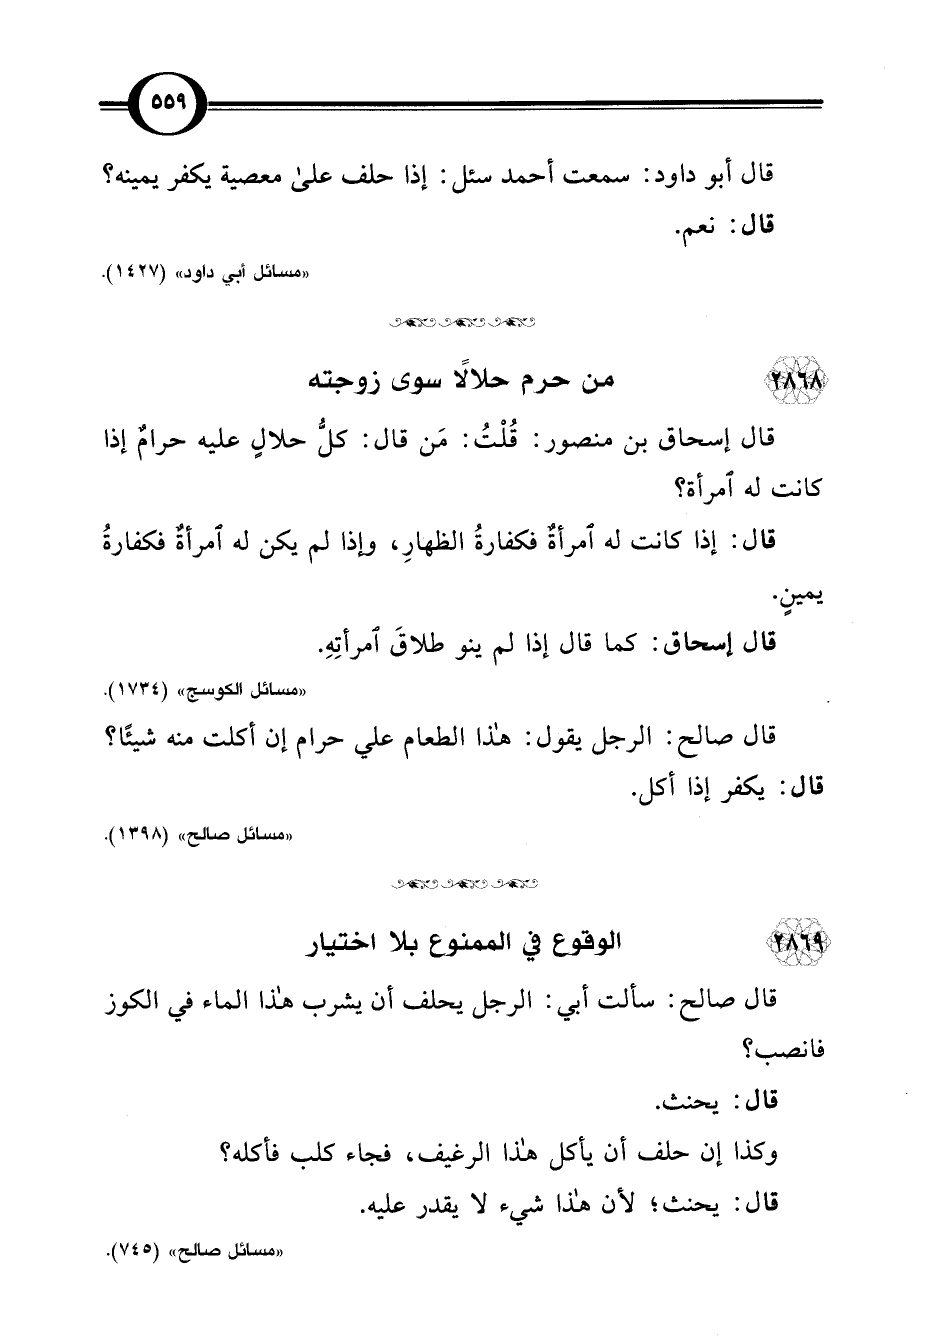 ٥٥٩
قال أبو داود: سمعت أحمد سئل: إذا حلف علىٰ معصية يكفر يمينه؟
قال: نعم.
«مسائل أبي داود» (١٤٢٧).
٢٨٦٨ من حرم حلالًا سوى زوجته
قال إسحاق بن منصور: قُلْتُ: مَن قال: كلُّ حلالٍ عليه حرامٌ إذا
كانت له ٱمرأة؟
قال: إذا كانت له ٱمرأةٌ فكفارةُ الظهارِ، وإذا لم يكن له ٱمرأةٌ فكفارةُ
يمينٍ.
قال إسحاق: كما قال إذا لم ينو طلاقَ ٱمرأتِهِ.
«مسائل الكوسج» (١٧٣٤).
قال صالح: الرجل يقول: هٰذا الطعام علي حرام إن أكلت منه شيئًا؟
قال: يكفر إذا أكل.
«مسائل صالح» (١٣٩٨).
٢٨٦٩ الوقوع في الممنوع بلا اختيار
قال صالح: سألت أبي: الرجل يحلف أن يشرب هٰذا الماء في الكوز
فانصب؟
قال: يحنث.
وكذا إن حلف أن يأكل هٰذا الرغيف، فجاء كلب فأكله؟
قال: يحنث؛ لأن هٰذا شيء لا يقدر عليه.
«مسائل صالح» (٧٤٥).